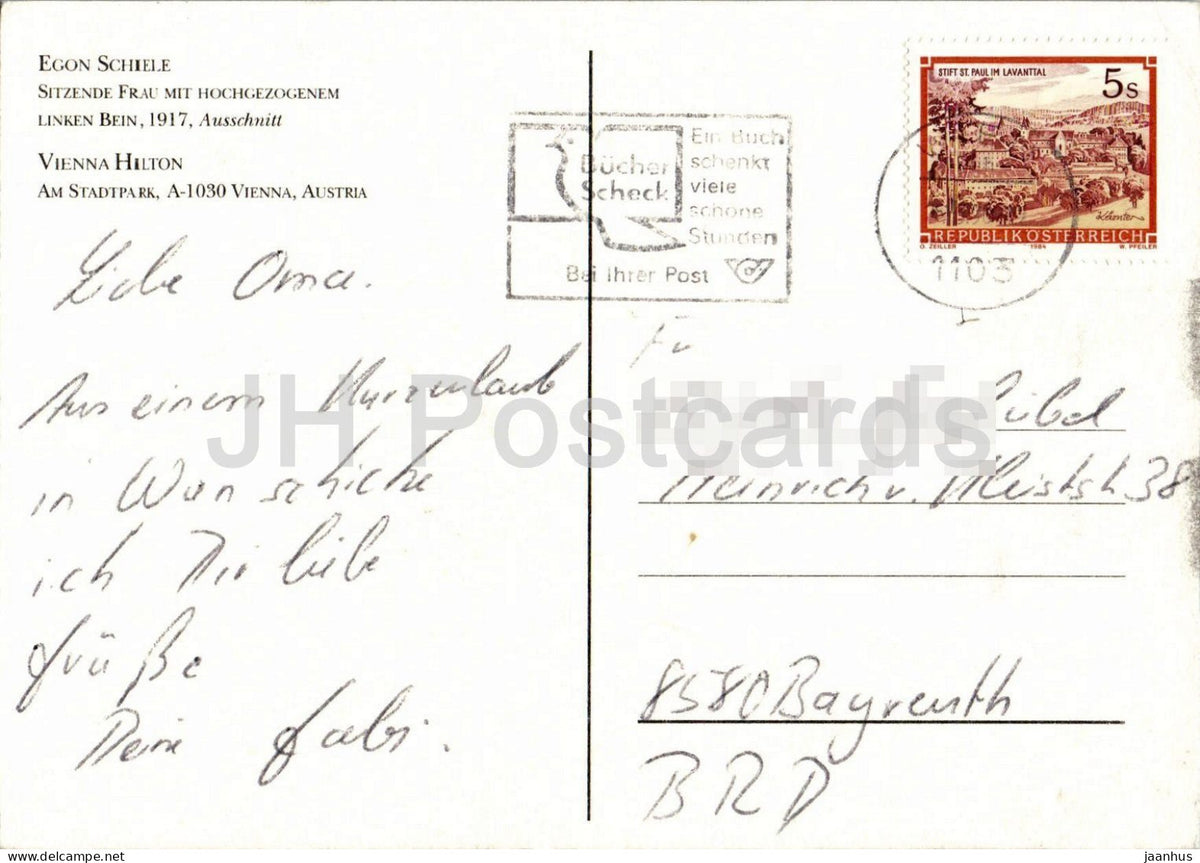 EGON SCHIELE
SITZENDE FRAU MIT HOCHGEZOGENEM
LINKEN BEIN, 1917, Ausschnitt
VIENNA HILTON
AM STADTPARK, A-1030 VIENNA, AUSTRIA
Liebe Oma.
Aus einem Kurzurlaub
in Wien schicke
ich Dir liebe
Grüße
Deine Gabi.
Bücher
Scheck
Ein Buch
schenkt
viele
schöne
Stunden
Bei Ihrer Post
STIFT ST. PAUL IM LAVANTTAL
5 S
Kärnten
REPUBLIK ÖSTERREICH
O. ZEILLER 1984 W. PFEILER
1103
Heinrich v. Kleiststr 38
8580 Bayreuth
BRD
JH Postcards
jaanhus